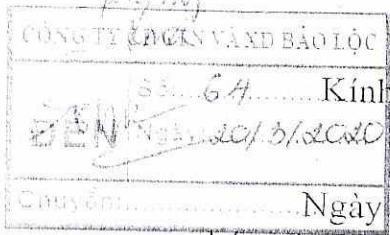 CÔNG TY CPCTCN VÀ XD BẢO LỘC
Số: 64 Kính
ĐẾN Ngày: 20/3/2020
Chuyển: Ngày